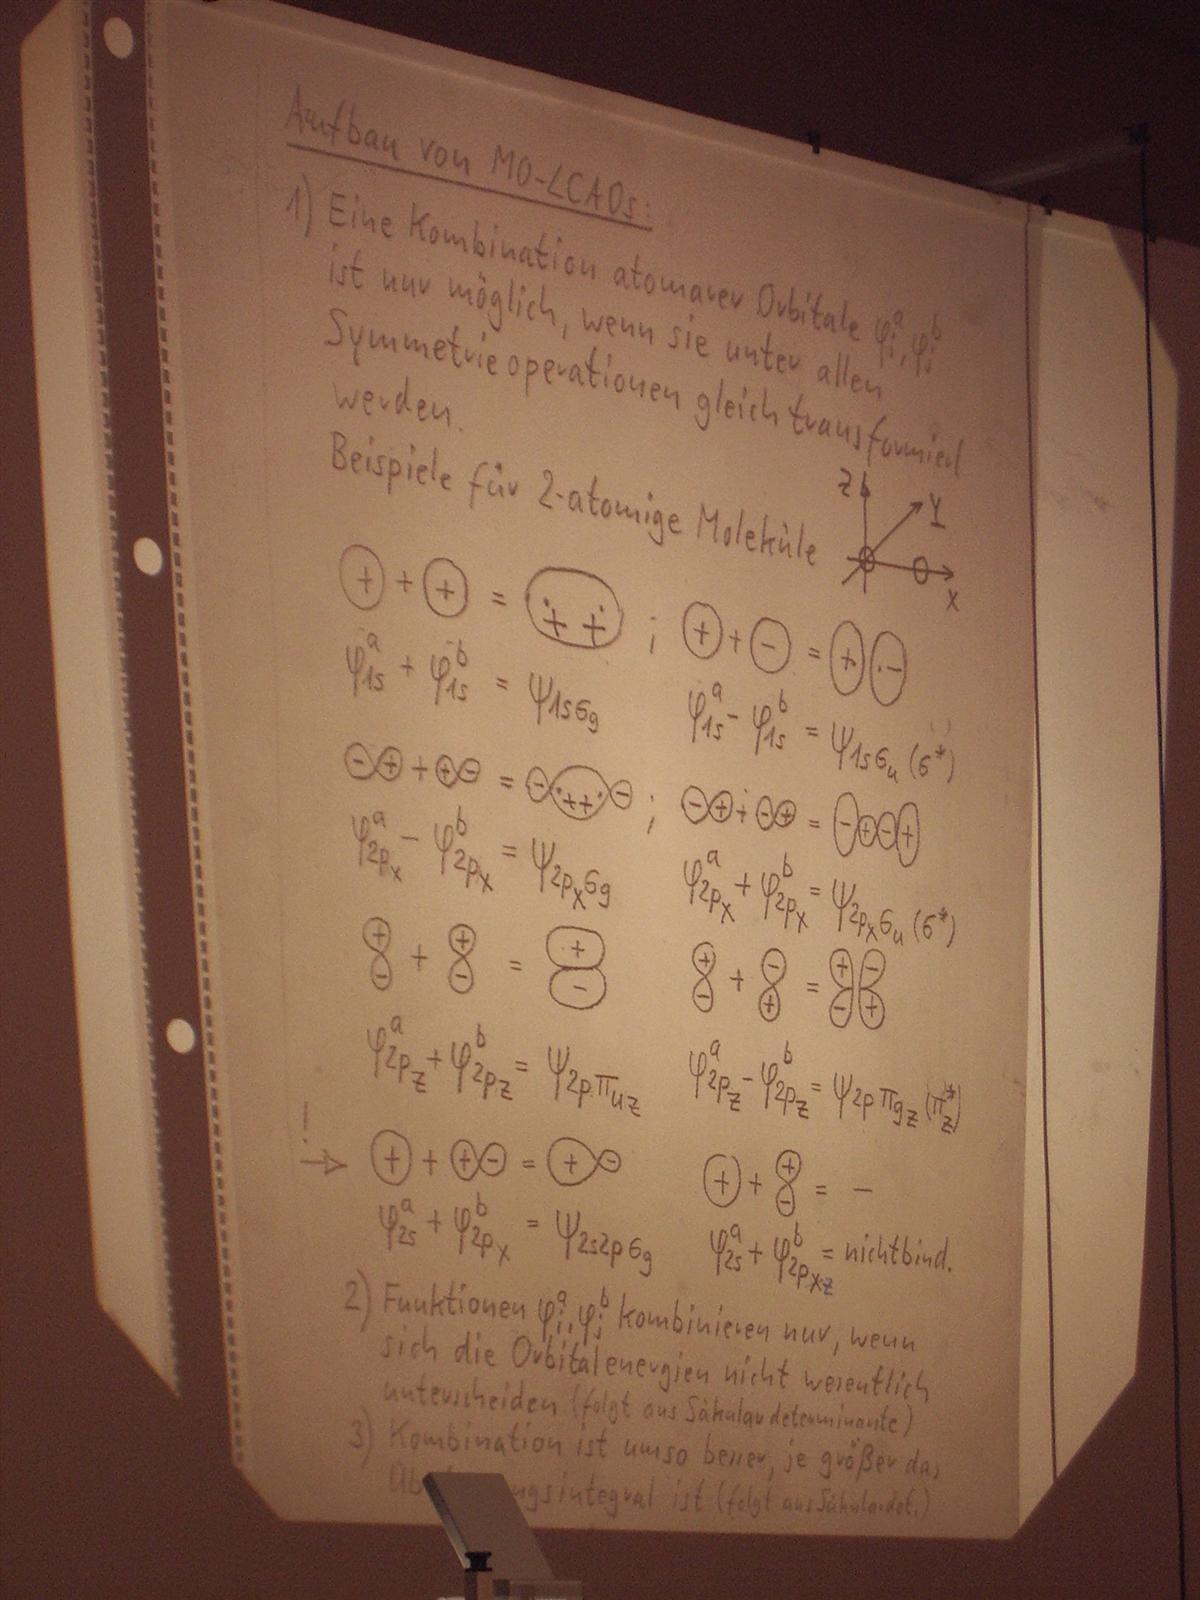 Aufbau von MO-LCAOs:
1) Eine Kombination atomarer Orbitale φᵢᵃ, φⱼᵇ
ist nur möglich, wenn sie unter allen
Symmetrieoperationen gleich transformiert
werden.
Beispiele für 2-atomige Moleküle
Z Y X
(+) + (+) = (+ +) ; (+) + (-) = (+)(-)
φ₁ₛᵃ + φ₁ₛᵇ = ψ1sσg φ₁ₛᵃ - φ₁ₛᵇ = ψ1sσu (σ*)
(-)(+) + (+)(-) = (-)(++)(-) ; (-)(+) + (-)(+) = (-)(+)(-)(+)
φ2pxᵃ - φ2pxᵇ = ψ2pxσg φ2pxᵃ + φ2pxᵇ = ψ2pxσu (σ*)
+ + + + - + -
+ = + =
- - - - + - +
φ2pzᵃ + φ2pzᵇ = ψ2pπuz φ2pzᵃ - φ2pzᵇ = ψ2pπgz (πz*)
! → (+) + (+)(-) = (+)(-) (+) + (+)(-) = -
φ2sᵃ + φ2pxᵇ = ψ2s2pσg φ2sᵃ + φ2pxzᵇ = nichtbind.
2) Funktionen φᵢᵃ, φⱼᵇ kombinieren nur, wenn
sich die Orbitalenergien nicht wesentlich
unterscheiden (folgt aus Säkulardeterminante)
3) Kombination ist umso besser, je größer das
integral ist (folgt aus Säkulardet.)